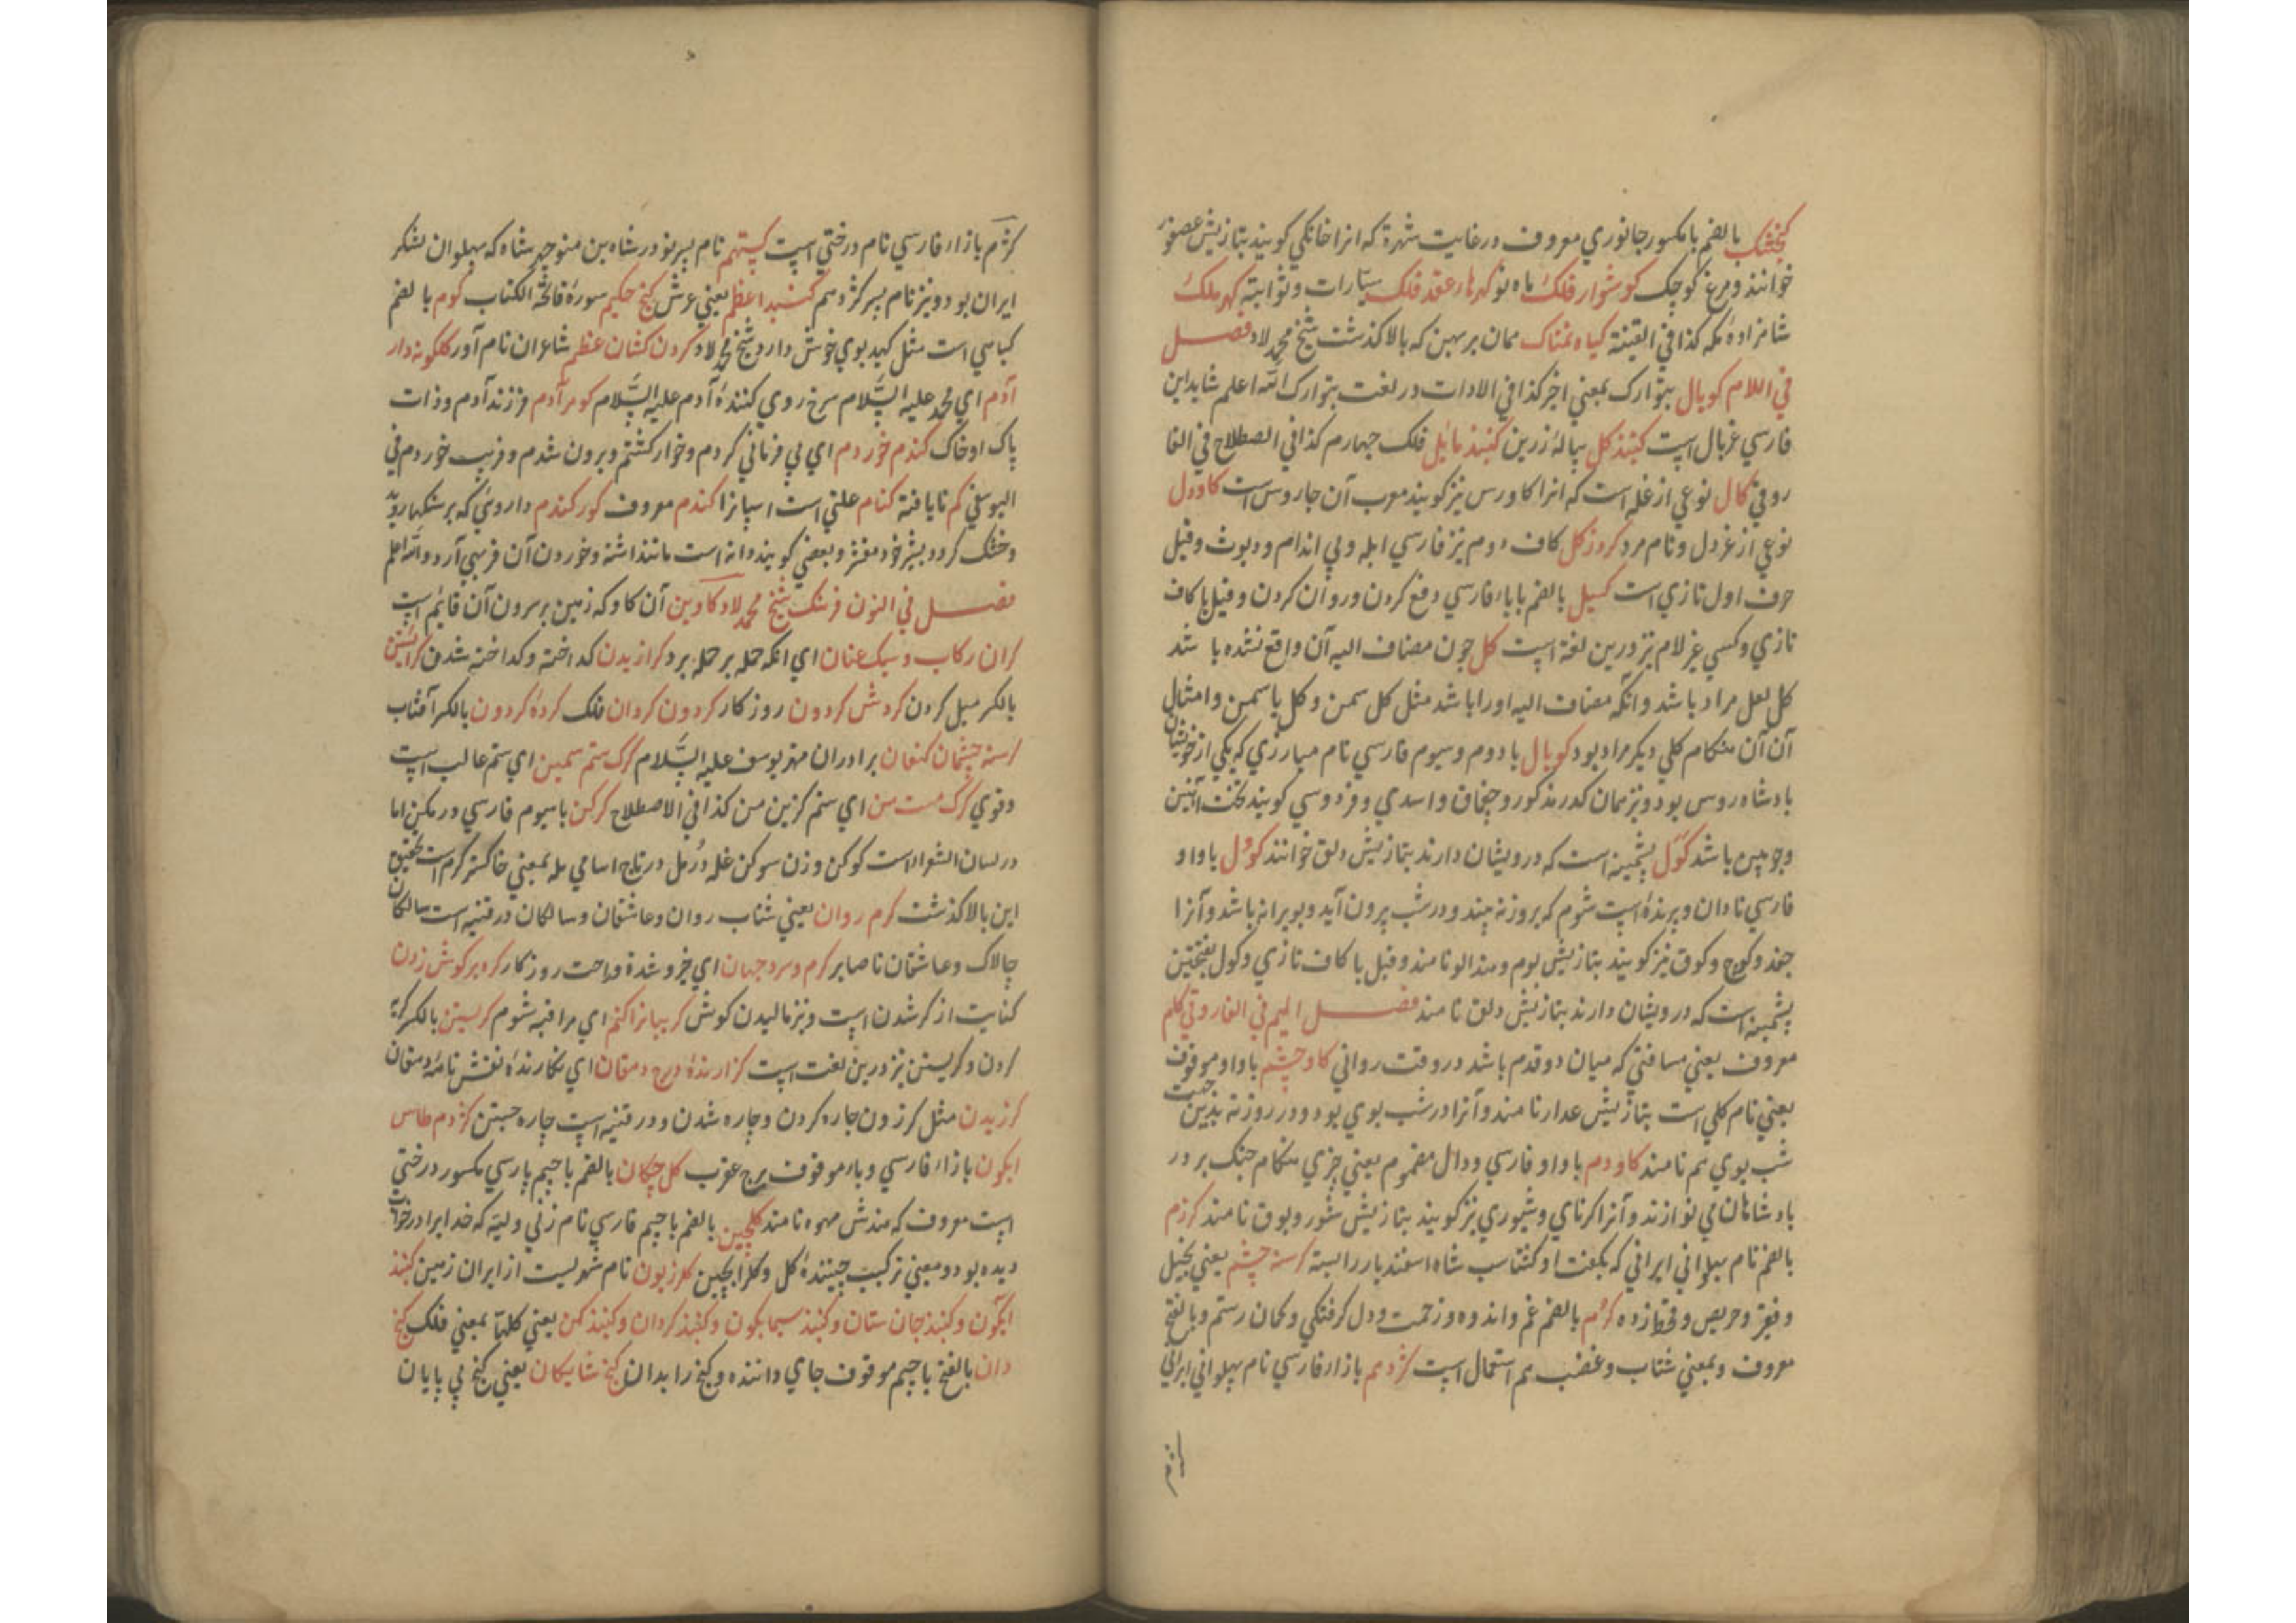 کنجشک بالضم با مکسور جانوری معروف در غایت شهرة که انرا خانکی کویند بتازیش عصفور
خوانند و مرغ کوچک کوشوار فلک ماه نو کهرها و عقد فلک سیارات و ثوابته کهر ملک
شاهزاده مکه کذا فی القنیة کیاه نمناک همان برهمن که بالا کذشت شیخ محمد لاد فصل
فی اللام کوپال بتوارک بمعنی اخر کذا فی الادات در لغت بتوارک الله اعلم شاید این
فارسی غربال است کنبذ کل پیالۀ زرین کنبذ مایل فلک چهارم کذا فی الصطلاح فی الفا
روقی کال نوعی از غله است که انرا کاورس نیز کویند معرب آن جاروس است کاودل
نوعی از غردل و نام مرد کروز کل کاف دوم نیز فارسی ابله و بی اندام و دیوث و قیل
حرف اول تازی است کسیل بالضم با یاء فارسی دفع کردن و روان کردن و قیل با کاف
تازی و کسی غر لام نیز درین لغة است کل چون مضاف الیه آن واقع نشده با شد
کل لعل مراد باشد و انکه مضاف الیه اورا باشد مثل کل سمن و کل یاسمین و امثال
آن آن هنکام کلی دیکر مراد بود کوپال با دوم و سیوم فارسی نام مبارزی که یکی از خویشان
بادشاه روس بود و نیز همان کدر مذکور و چفماق و اسدی و فردوسی کویند لخت آهنین
و چوبین باشد کول پشمینه است که درویشان دارند بتازیش دلق خوانند کول با واو
فارسی نادان و پرندۀ است شوم که بروز نه بیند و در شب بیرون آید و بویرانه باشد و آنرا
جغد و کوچ و کوف نیز کویند بتازیش بوم و هند الو نامند و قیل با کاف تازی و کول بفتحتین
پشمینه است که درویشان دارند بتازیش دلق نامند فصل المیم فی الفاروقی کام
معروف یعنی مسافتی که میان دو قدم باشد در وقت روانی کاو چشم با واو موقوف
یعنی نام کلی است بتازیش عدار نامند و آنرا در شب بوی بود و در روز نه بدین جهت
شب بوی هم نامند کاودم با واو فارسی و دال مضموم یعنی چیزی هنکام جنک بر در
بادشاهان می نوازند و آنرا کرنای و شیپوری نیز کویند بتازیش شور و بوق نامند کرزم
بالضم نام پهلوانی ایرانی که بکفت او کشتاسب شاه اسفندیار را بسته کرسنه چشم یعنی بخیل
و فقیر و حریص و قحط زده کرم بالضم غم و اندوه و زحمت و دل کرفتکی و کمان رستم و بالفتح
معروف و بمعنی شتاب و غضب هم استعمال است کژدهم با زاء فارسی نام پهلوانی ایرانی
کژم با زاء فارسی نام درختی است کستهم نام پسر نوذر شاه بن منوچهر شاه که پهلوان لشکر
ایران بود و نیز نام پسر کژدهم کنبد اعظم یعنی عرش کنج حکیم سورۀ فاتحة الکتاب کوم بالضم
کیاهی است مثل کبد بوی خوش دارد شیخ محمد لاد کردن کشان عظم شاعران نام آور کلکونه دار
آدم ای محمد علیه السلام سرخ روی کنندۀ آدم علیه السلام کوهر آدم فرزند آدم و ذات
پاک او خاک کندم خوردم ای بی فرمانی کردم و خوار کشتم و برون شدم و فریب خوردم فی
الیوسفی کم نایافته کنام علتی است اسپانرا کندم معروف کورکندم داروئی که بر سنکها روید
و خشک کردد بیشتر خود مغز و بعضی کویند دانه است مانند اشنه و خوردن آن فربهی آرد والله اعلم
فصل فی النون فرهنک شیخ محمد لاد کاوین آن کاو که زمین بر سرون آن قایم است
کران رکاب و سبک عنان ای انکه حمله بر حمله برد کرازیدن کداخته و کداخته شدن کرائیدن
بالکسر میل کردن کردش کردون روزکار کردون کردان فلک کردۀ کردون بالکسر آفتاب
کرسنه چشمان کنعان برادران مهتر یوسف علیه السلام کرک ستم سمین ای ستم غالب است
و قوی کرک مست من ای ستم کزین من کذا فی الاصطلاح کرکن با سیوم فارسی در مکین اما
در لسان الشعرا است کوکن و زن سوکن غله درمل در تاج اسامی مله بمعنی خاکستر کرم است تحقیق
این بالا کذشت کرم روان یعنی شتاب روان و عاشقان و سالکان در قنیه است سالکان
چالاک و عاشقان ناصابر کرم و سرد جهان ای خیر و شدة و راحت روزکار کره بر کوش زدن
کنایت از کر شدن است و نیز مالیدن کوش کریبانرا کنم ای مراقبه شوم کریستن بالکسر کریه
کردن و کریستن نیز درین لغت است کزارندۀ درج دهقان ای نکارندۀ نقش نامۀ دهقان
کرزیدن مثل کرزون چاره کردن و چاره شدن و در قنیه است چاره جستن کژدم طاس
ابکون با زاء فارسی و باء موقوف برج عقرب کل چکان بالضم با جیم پارسی مکسور درختی
است معروف که هندش مهوه نامند کلچین بالضم با جیم فارسی نام زنی ولیه که خدایرا در خواب
دیده بود و معنی ترکیب چینندۀ کل و کلرا بچین کلزیون نام شهریست از ایران زمین کنبذ
ابکون و کنبذ جان ستان و کنبذ سیمابکون و کنبذ کردان و کنبذ کمن یعنی کلها بمعنی فلک کنج
دان بالفتح با جیم موقوف جای داننده و کنج را بدان کنج شایکان یعنی کنج بی پایان